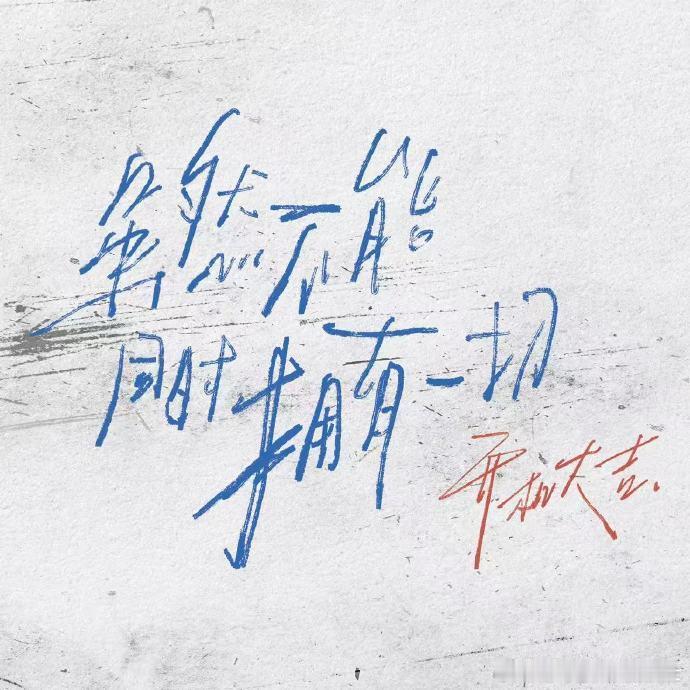 虽然不能
同时拥有一切
开机大吉